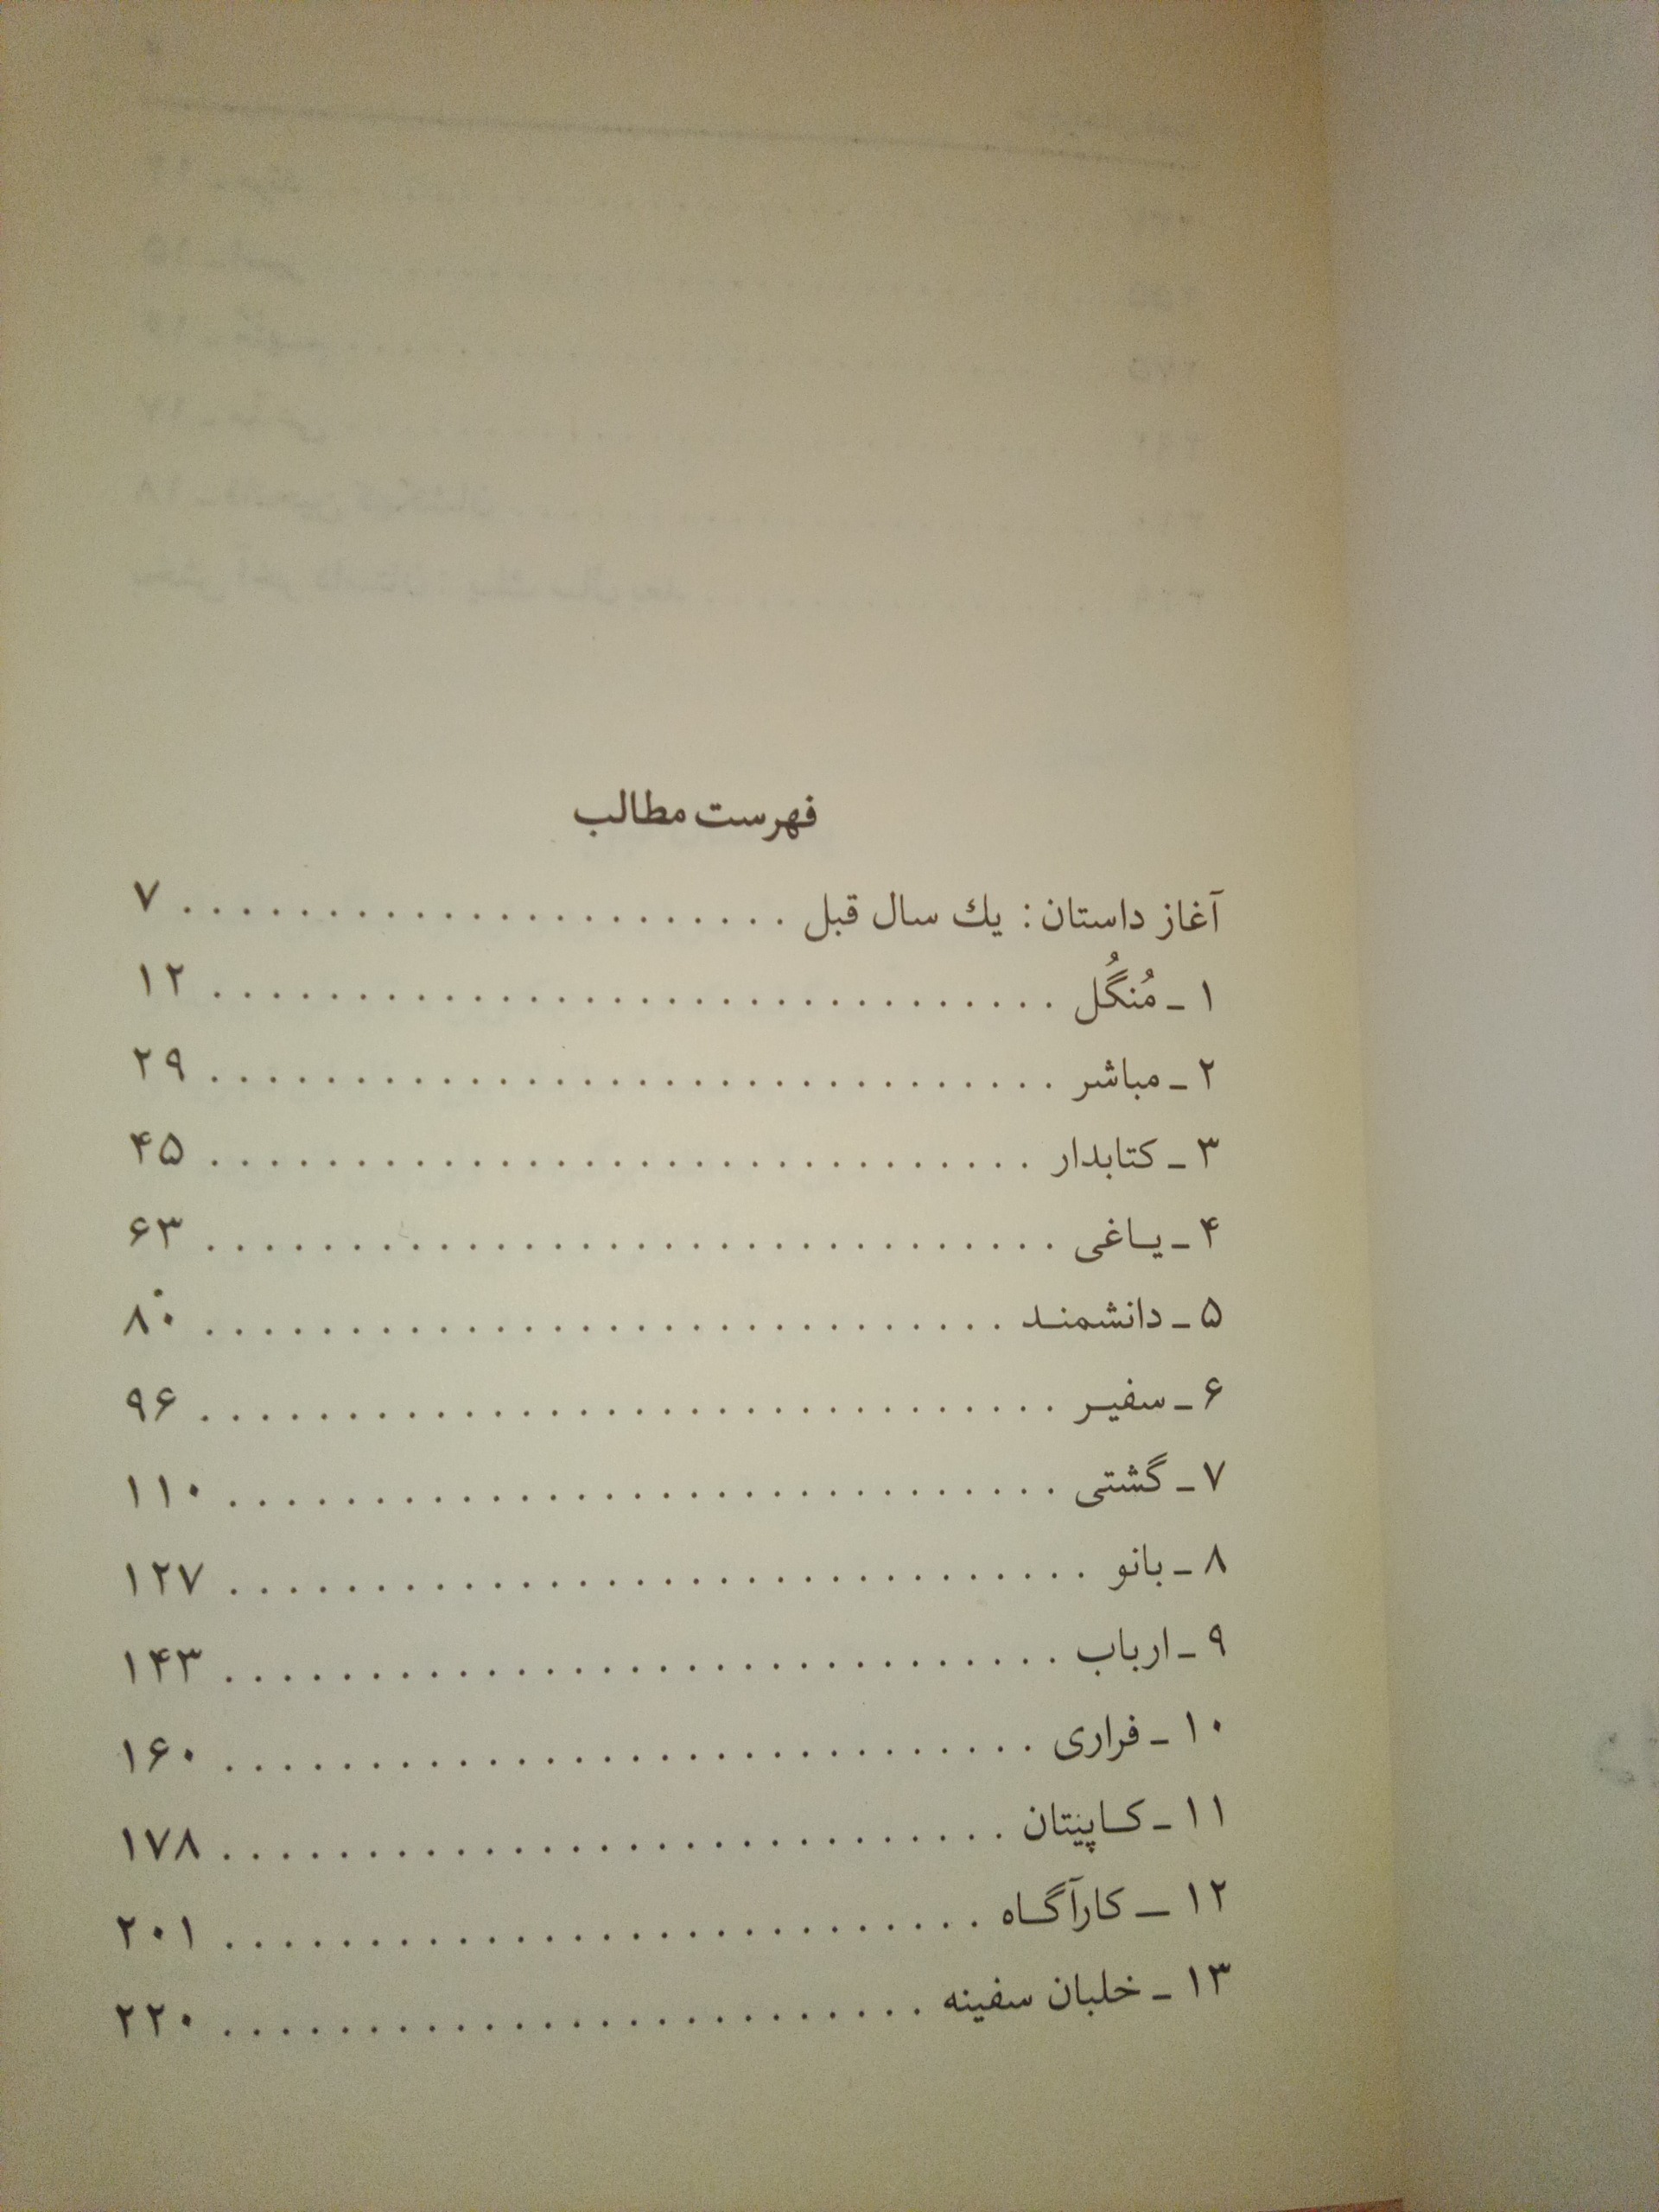 فهرست مطالب
آغاز داستان: يك سال قبل . . . . . . . . . . . . . . . . . . . . . ۷
۱ ـ مُنگُل . . . . . . . . . . . . . . . . . . . . . . . . . . . . . ۱۲
۲ ـ مباشر . . . . . . . . . . . . . . . . . . . . . . . . . . . . . ۲۹
۳ ـ کتابدار . . . . . . . . . . . . . . . . . . . . . . . . . . . . ۴۵
۴ ـ یـاغی . . . . . . . . . . . . . . . . . . . . . . . . . . . . . ۶۳
۵ ـ دانشمنـد . . . . . . . . . . . . . . . . . . . . . . . . . . . ۸۰
۶ ـ سفیـر . . . . . . . . . . . . . . . . . . . . . . . . . . . . . ۹۶
۷ ـ گشتی . . . . . . . . . . . . . . . . . . . . . . . . . . . . . ۱۱۰
۸ ـ بانو . . . . . . . . . . . . . . . . . . . . . . . . . . . . . . ۱۲۷
۹ ـ ارباب . . . . . . . . . . . . . . . . . . . . . . . . . . . . . ۱۴۳
۱۰ ـ فراری . . . . . . . . . . . . . . . . . . . . . . . . . . . . ۱۶۰
۱۱ ـ کـاپیتان . . . . . . . . . . . . . . . . . . . . . . . . . . . ۱۷۸
۱۲ ــ کارآگـاه . . . . . . . . . . . . . . . . . . . . . . . . . . ۲۰۱
۱۳ ـ خلبان سفینه . . . . . . . . . . . . . . . . . . . . . . . . ۲۲۰